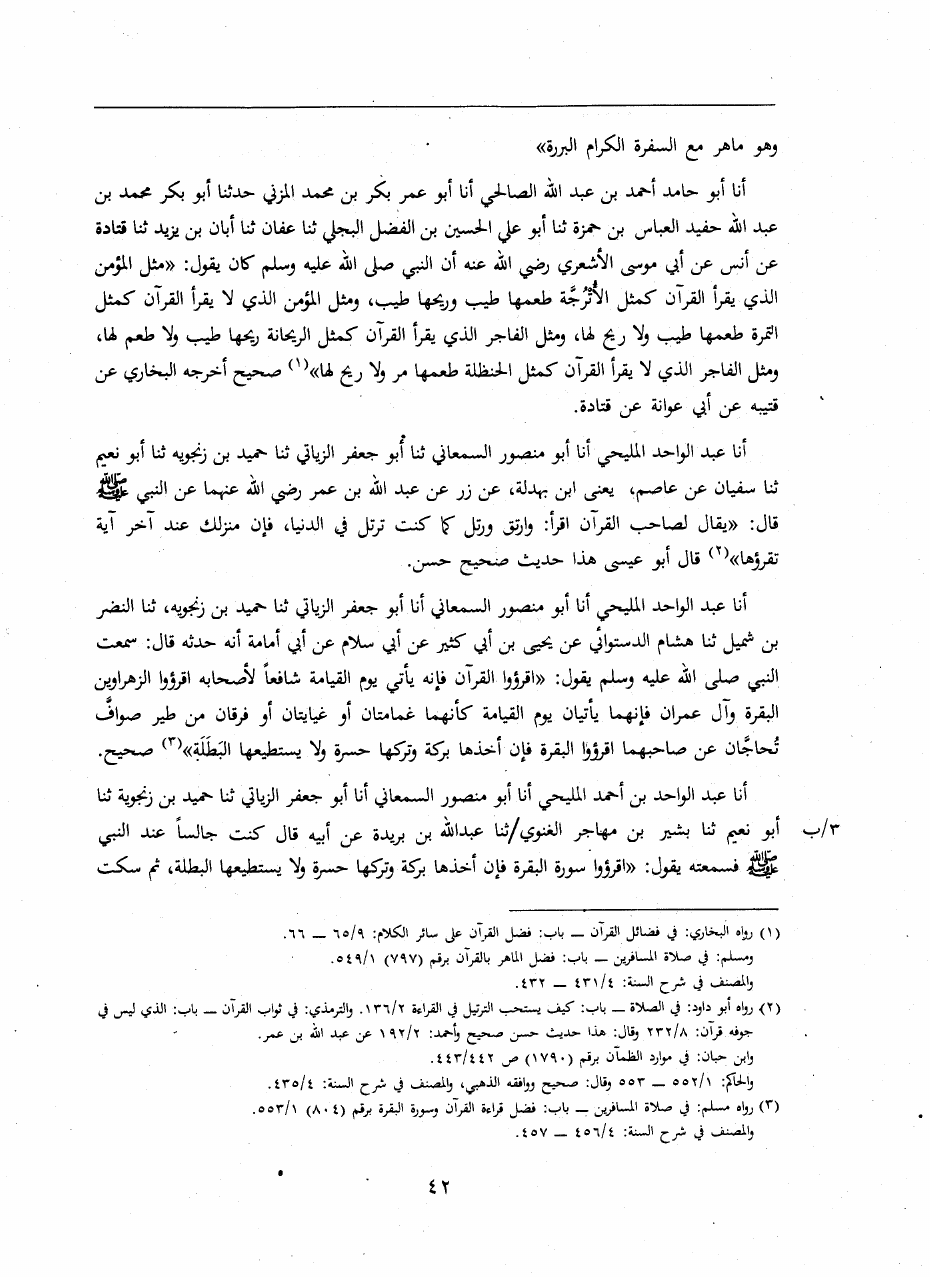 وهو ماهر مع السفرة الكرام البررة»
أنا أبو حامد أحمد بن عبد الله الصالحي أنا أبو عمر بكر بن محمد المزني حدثنا أبو بكر محمد بن
عبد الله حفيد العباس بن حمزة ثنا أبو علي الحسين بن الفضل البجلي ثنا عفان ثنا أبان بن يزيد ثنا قتادة
عن أنس عن أبي موسى الأشعري رضي الله عنه أن النبي صلى الله عليه وسلم كان يقول: «مثل المؤمن
الذي يقرأ القرآن كمثل الأُتْرُجَّة طعمها طيب وريحها طيب، ومثل المؤمن الذي لا يقرأ القرآن كمثل
التمرة طعمها طيب ولا ريح لها، ومثل الفاجر الذي يقرأ القرآن كمثل الريحانة ريحها طيب ولا طعم لها،
ومثل الفاجر الذي لا يقرأ القرآن كمثل الحنظلة طعمها مر ولا ريح لها»(١) صحيح أخرجه البخاري عن
قتيبه عن أبي عوانة عن قتادة.
أنا عبد الواحد المليحي أنا أبو منصور السمعاني ثنا أبو جعفر الزياتي ثنا حميد بن زنجويه ثنا أبو نعيم
ثنا سفيان عن عاصم، يعنى ابن بهدلة، عن زر عن عبد الله بن عمر رضي الله عنهما عن النبي ﷺ
قال: «يقال لصاحب القرآن اقرأ: وارتق ورتل كما كنت ترتل في الدنيا، فإن منزلك عند آخر آية
تقرؤها»(٢) قال أبو عيسى هذا حديث صحيح حسن.
أنا عبد الواحد المليحي أنا أبو منصور السمعاني أنا أبو جعفر الزياتي ثنا حميد بن زنجويه، ثنا النضر
بن شميل ثنا هشام الدستوائي عن يحيى بن أبي كثير عن أبي سلام عن أبي أمامة أنه حدثه قال: سمعت
النبي صلى الله عليه وسلم يقول: «اقرؤوا القرآن فإنه يأتي يوم القيامة شافعاً لأصحابه اقرؤوا الزهراوين
البقرة وآل عمران فإنهما يأتيان يوم القيامة كأنهما غمامتان أو غيايتان أو فرقان من طير صوافَّ
تُحاجَّان عن صاحبهما اقرؤوا البقرة فإن أخذها بركة وتركها حسرة ولا يستطيعها البَطَلَةِ»(٣) صحيح.
أنا عبد الواحد بن أحمد المليحي أنا أبو منصور السمعاني أنا أبو جعفر الزياتي ثنا حميد بن زنجوية ثنا
٣/ب أبو نعيم ثنا بشير بن مهاجر الغنوي/ثنا عبدالله بن بريدة عن أبيه قال كنت جالساً عند النبي
ﷺ فسمعته يقول: «اقرؤوا سورة البقرة فإن أخذها بركة وتركها حسرة ولا يستطيعها البطلة، ثم سكت
(١) رواه البخاري: في فضائل القرآن — باب: فضل القرآن على سائر الكلام: ٦٥/٩ — ٦٦.
ومسلم: في صلاة المسافرين — باب: فضل الماهر بالقرآن برقم (٧٩٧) ٥٤٩/١.
والمصنف في شرح السنة: ٤٣١/٤ — ٤٣٢.
(٢) رواه أبو داود: في الصلاة — باب: كيف يستحب الترتيل في القراءة ١٣٦/٢. والترمذي: في ثواب القرآن — باب: الذي ليس في
جوفه قرآن: ٢٣٢/٨ وقال: هذا حديث حسن صحيح وأحمد: ١٩٢/٢ عن عبد الله بن عمر.
وابن حبان: في موارد الظمآن برقم (١٧٩٠) ص ٤٤٣/٤٤٢.
والحاكم: ٥٥٢/١ — ٥٥٣ وقال: صحيح ووافقه الذهبي، والمصنف في شرح السنة: ٤٣٥/٤.
(٣) رواه مسلم: في صلاة المسافرين — باب: فضل قراءة القرآن وسورة البقرة برقم (٨٠٤) ٥٥٣/١.
والمصنف في شرح السنة: ٤٥٦/٤ — ٤٥٧.
٤٢